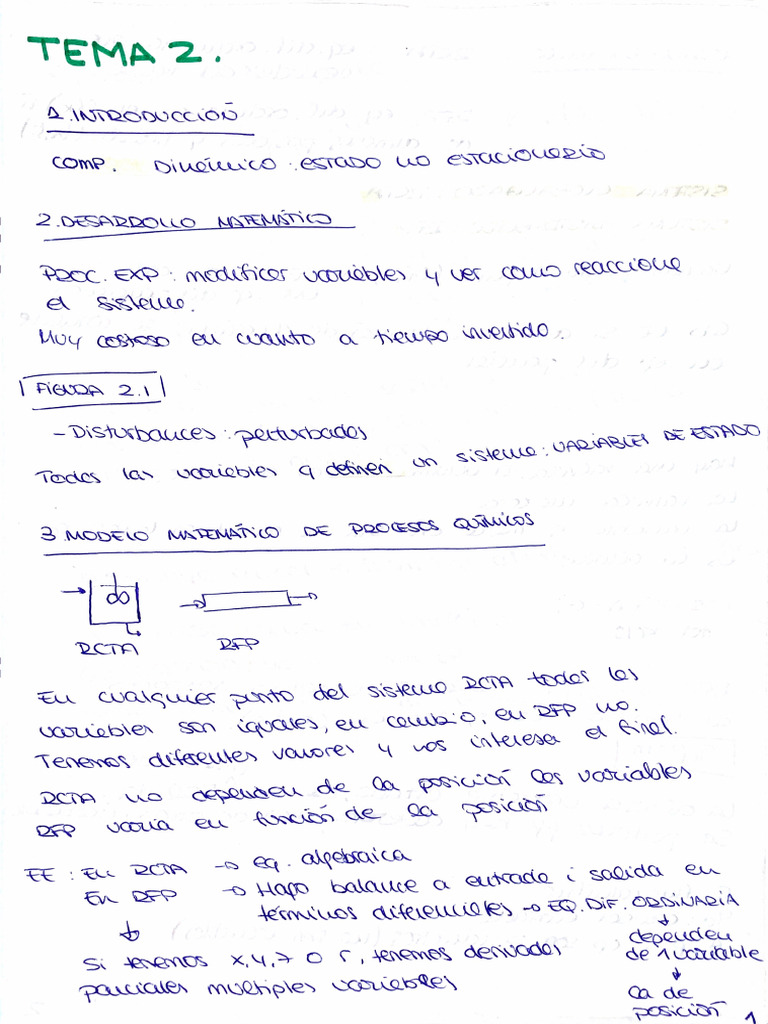 TEMA 2.
1. INTRODUCCIÓN
COMP. DINÁMICO : ESTADO NO ESTACIONARIO
2. DESARROLLO MATEMÁTICO
PROC. EXP : modificar variables y ver como reacciona
el sistema.
MUY costoso en cuanto a tiempo invertido
FIGURA 2.1
- Disturbances : perturbades
Todas las variables q definen un sistema : VARIABLES DE ESTADO
3 MODELO MATEMÁTICO DE PROCESOS QUÍMICOS
RCTA RFP
En cualquier punto del sistema RCTA todas las
variables son iguales, en cambio, en RFP no.
Tenemos diferentes valores y nos interesa el final.
RCTA no dependen de la posición las variables
RFP varía en función de la posición
EE : En RCTA → eq. algebraica
En RFP → Hago balance a entrada i salida en
términos diferenciales → EQ. DIF. ORDINARIA
↓ dependen
de 1 variable
↓ Si tenemos x, y, z o r, tenemos derivadas
parciales multiples variables
↓ la de
posición
1